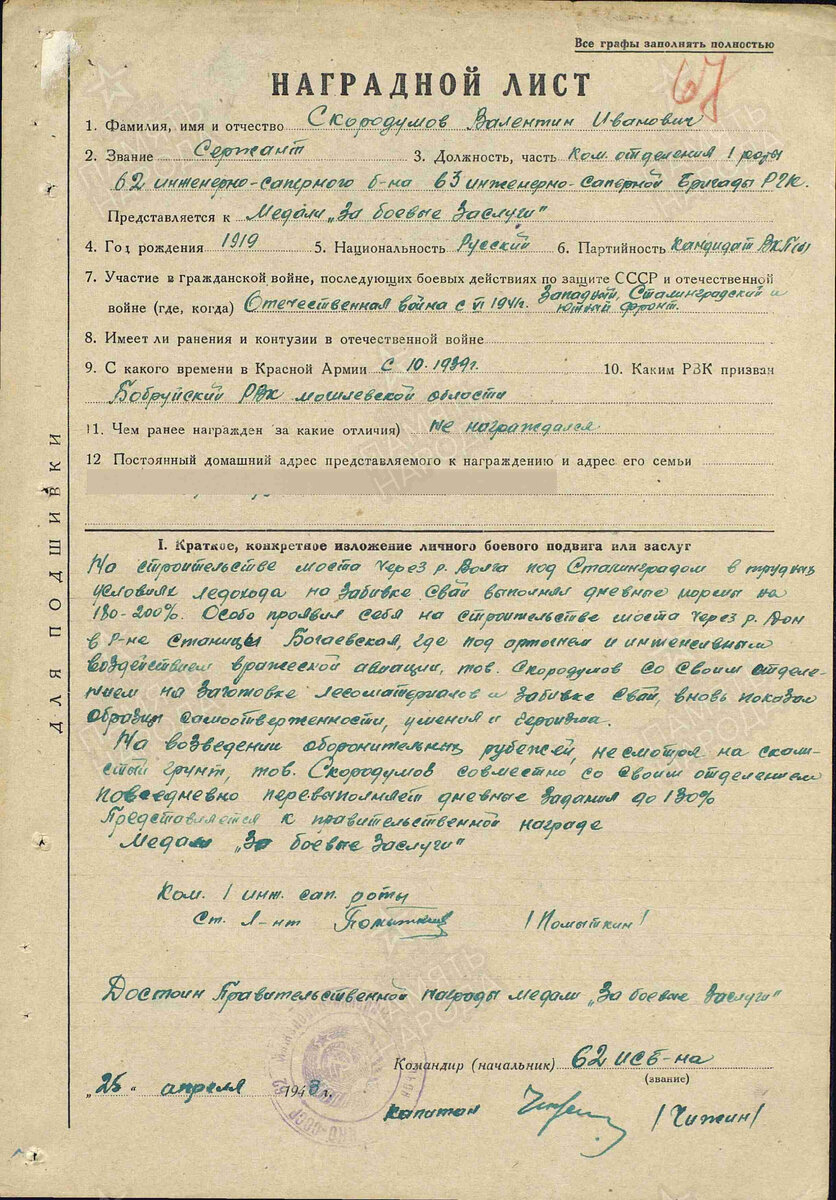 Все графы заполнять полностью
67
НАГРАДНОЙ ЛИСТ
1. Фамилия, имя и отчество Скородумов Валентин Иванович
2. Звание Сержант 3. Должность, часть Ком. отделения 1 роты
62 инженерно-саперного б-на 63 инженерно-саперной Бригады РГК.
Представляется к Медали „За боевые Заслуги"
4. Год рождения 1919 5. Национальность Русский 6. Партийность Кандидат ВКП(б)
7. Участие в гражданской войне, последующих боевых действиях по защите СССР и отечественной
войне (где, когда) Отечественная война с VI 1941г. Западный, Сталинградский и
южный фронт.
8. Имеет ли ранения и контузии в отечественной войне
9. С какого времени в Красной Армии с 10.1939г. 10. Каким РВК призван
Бобруйский РВК могилевской области
11. Чем ранее награжден за какие отличия) не награждался
12 Постоянный домашний адрес представляемого к награждению и адрес его семьи
ДЛЯ ПОДШИВКИ
I. Краткое, конкретное изложение личного боевого подвига или заслуг
На строительстве моста через р. Волга под Сталинградом в трудных
условиях ледохода на забивке свай выполнял дневные нормы на
180-200%. Особо проявил себя на строительстве моста через р. Дон
в р-не станицы Богаевская, где под артогнем и интенсивным
воздействием вражеской авиации, тов. Скородумов со своим отделе-
нием на заготовке лесоматериалов и забивке свай, вновь показал
образцы самоотверженности, умения и героизма.
На возведении оборонительных рубежей, несмотря на скали-
стый грунт, тов. Скородумов совместно со своим отделением
повседневно перевыполняет дневные задания до 130%
Представляется к правительственной награде
Медали „За боевые Заслуги"
Ком. 1 инж. сап. роты
Ст. Л-нт /Помыткин/
Достоин Правительственной награды медали „За боевые Заслуги"
Командир (начальник) 62 исб-на
(звание)
„25" апреля 1943г.
капитан /Чижин/
ПАМЯТЬ НАРОДА